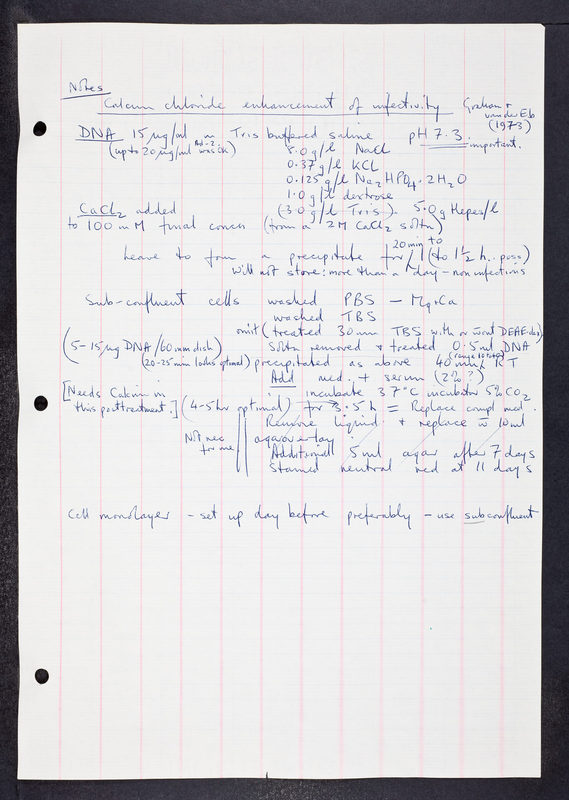 Notes
Calcium chloride enhancement of infectivity Graham + van der Eb (1973)
DNA 15 µg/ml in Tris buffered saline pH 7.3 important.
(up to 20 µg/ml was ok) 8.0 g/l NaCl
0.37 g/l KCl
0.125 g/l Na2HPO4.2H2O
1.0 g/l dextrose
CaCl2 added (3.0 g/l Tris). 5.0 g Hepes/l
to 100 mM final concn (from a 2M CaCl2 soltn)
leave to form a precipitate for 20 min to 1 (to 1½ h. poss)
will not store: more than a day - non infectious
Sub-confluent cells washed PBS - Mg+Ca
washed TBS
omit (treated 30 min TBS with or wout DEAE-dex)
(5-15 µg DNA/60mm dish) Soltn removed & treated 0.5ml DNA
(20-25 min looks optimal) precipitated as above 40 min RT
Add med. + serum (2%?)
[Needs Calcium in incubate 37°C incubator 5% CO2
this posttreatment.] (4-5 hr optimal) for 3.5 h = Replace compl med.
Remove liquid & replace w 10 ml
Not nec for me agar overlay
Additional 5 ml agar after 7 days
Stained neutral red at 11 days
Cell monolayer - set up day before preferably - use subconfluent